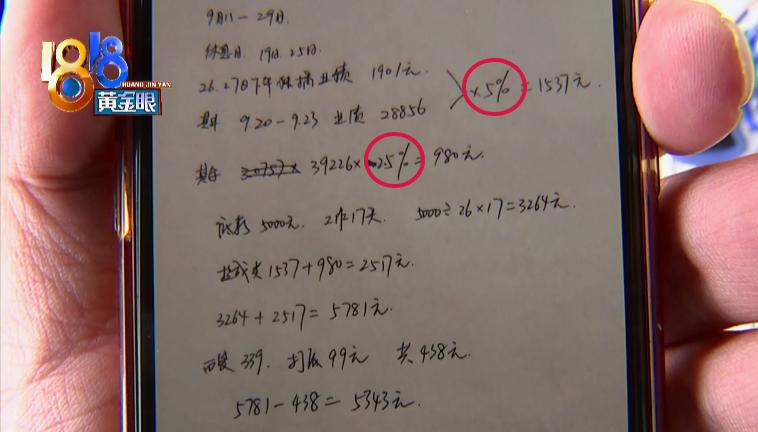 1818
HUANG JIN YAN
黄金眼
9月11-29日.
休息日. 19日. 25日.
26.27日下午 业绩 1901元.
9.20-9.23 业绩 28856
×5% = 1537元.
39226×25%= 980元.
底薪 5000元. 工作17天. 5000÷26×17=3264元.
1537+980=2517元.
3264+2517=5781元.
339. 打底 99元 共 438元.
5781-438=5343元.